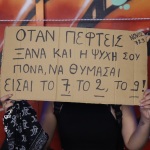 ΟΤΑΝ ΠΕΦΤΕΙΣ
ΞΑΝΑ ΚΑΙ Η ΨΥΧΗ ΣΟΥ
ΠΟΝΑ, ΝΑ ΘΥΜΑΣΑΙ
ΕΙΣΑΙ ΤΟ 7 ΤΟ 2, ΤΟ 9!